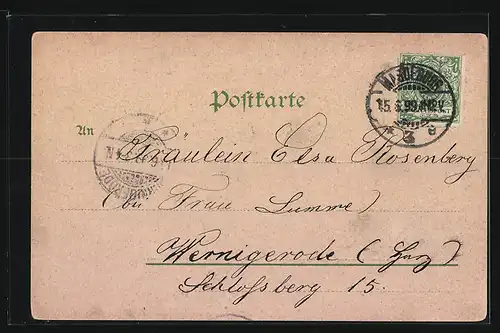 Postkarte
15.6.99.
An
Fräulein Elsa Rosenberg
(bei Frau Lumme)
Wernigerode (Harz)
Schloßberg 15.